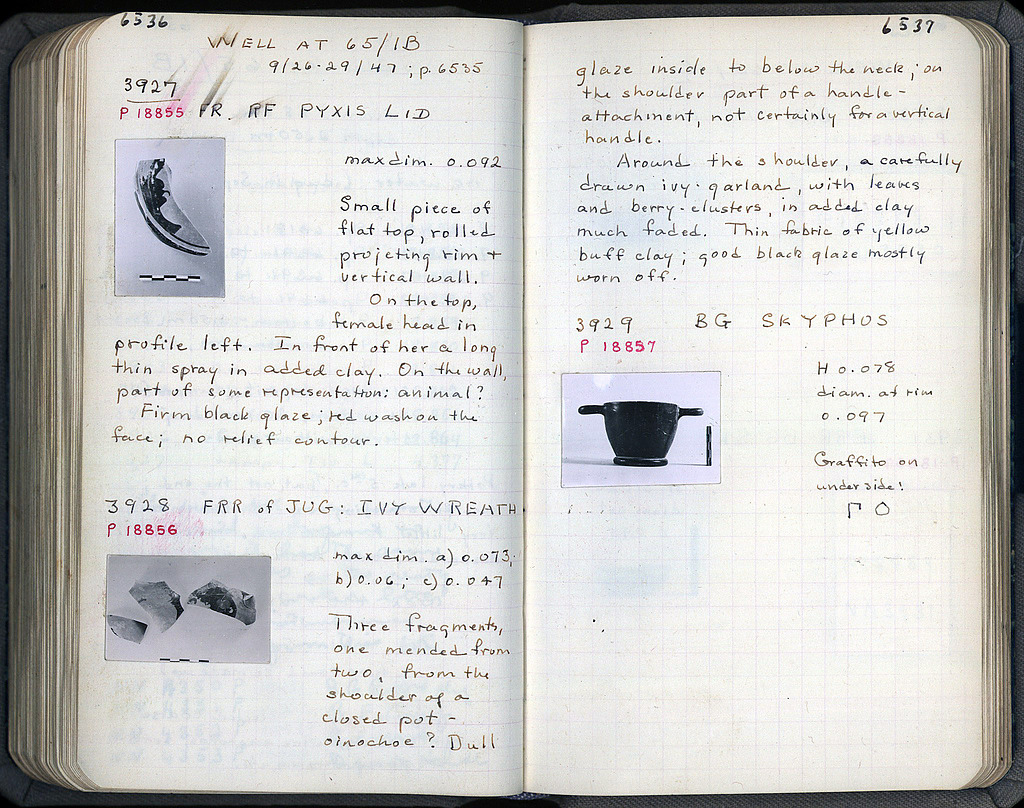 6536
WELL AT 65/1B
9/26-29/47; p. 6535
3927
P 18855 FR. RF PYXIS LID
max dim. 0.092
Small piece of
flat top, rolled
projecting rim +
vertical wall.
On the top,
female head in
profile left. In front of her a long
thin spray in added clay. On the wall,
part of some representation: animal?
Firm black glaze; red wash on the
face; no relief contour.
3928 FRR of JUG: IVY WREATH
P 18856
max dim. a) 0.073;
b) 0.06; c) 0.047
Three fragments,
one mended from
two, from the
shoulder of a
closed pot -
oinochoe? Dull
6537
glaze inside to below the neck; on
the shoulder part of a handle-
attachment, not certainly for a vertical
handle.
Around the shoulder, a carefully
drawn ivy-garland, with leaves
and berry-clusters, in added clay
much faded. Thin fabric of yellow
buff clay; good black glaze mostly
worn off.
3929 BG SKYPHOS
P 18857
H 0.078
diam. at rim
0.097
Graffito on
under side:
Γ Ο